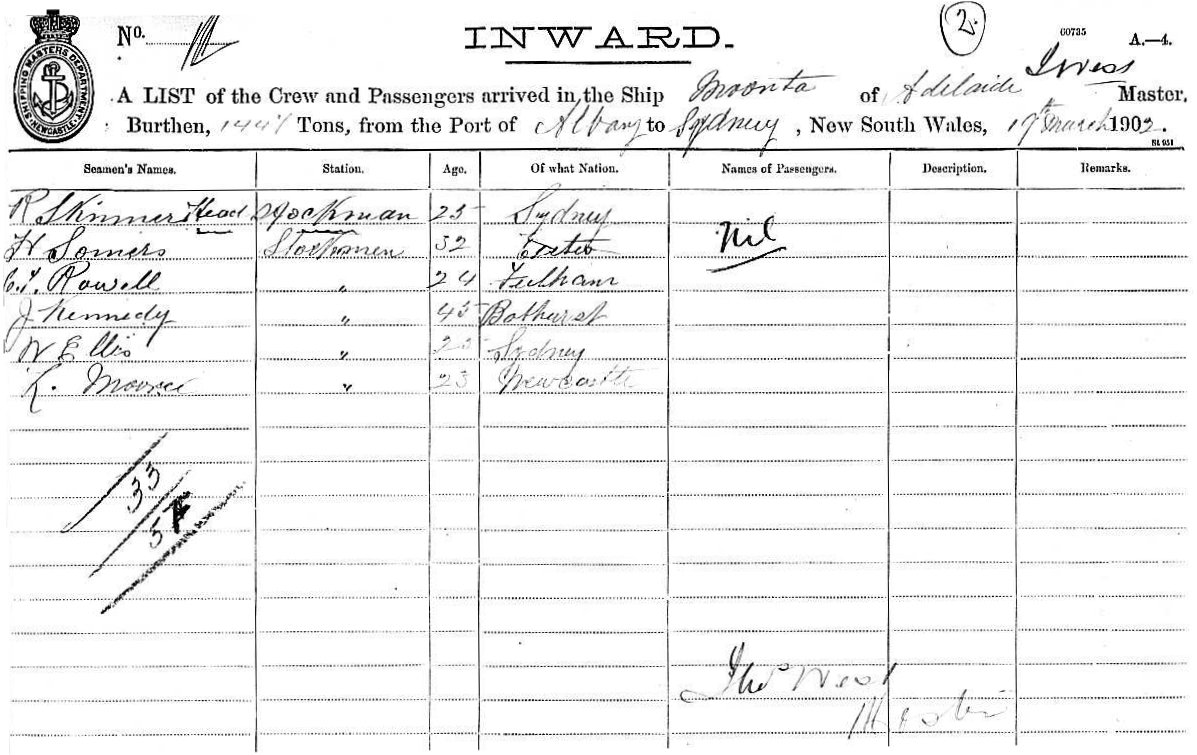 No. INWARD. 2. 60735 A.—4.
SHIPPING MASTERS DEPARTMENT NEWCASTLE
A LIST of the Crew and Passengers arrived in the Ship Moonta of Adelaide T West Master,
Burthen, Tons, from the Port of Albany to Sydney, New South Wales, March 1902.
St 951
Seamen's Names. Station. Age. Of what Nation. Names of Passengers. Description. Remarks.
R Skinner Head Stockman 25 Sydney Nil
H Somers Stockmen 32 Exeter
C.Y. Rowell " 24 Fulham
J Kennedy " 45 Bathurst
W Ellis " 25 Sydney
Moore " 23 Newcastle
33
5
Thos West
Master